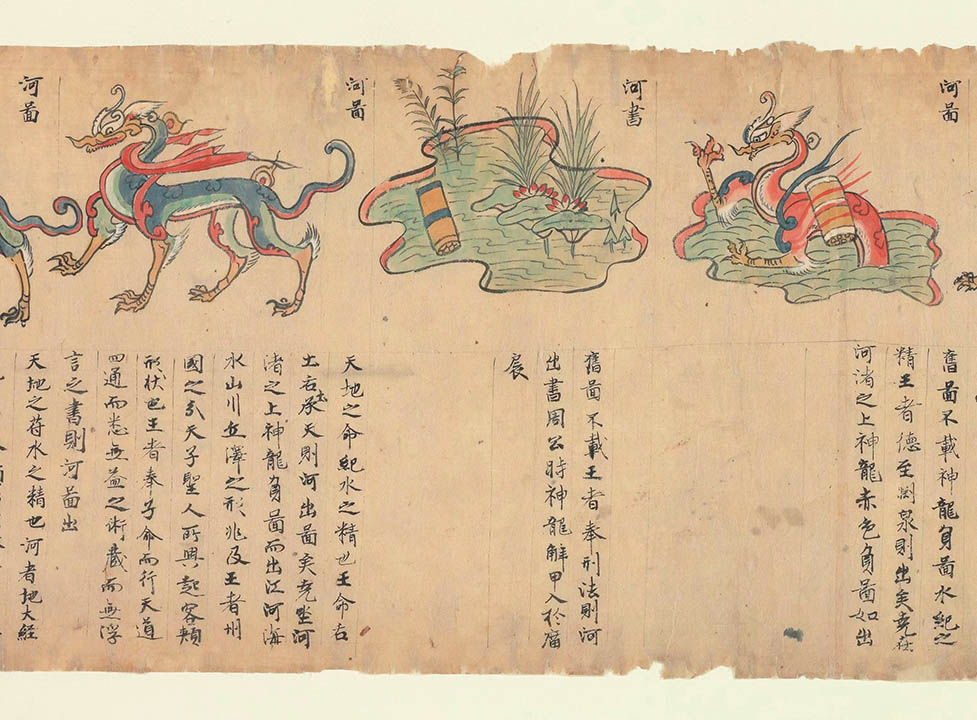 河啚
舊啚不載神龍負啚水紀之
精王者德至渕泉則出矣堯在
河渚之上神龍赤色負啚如出
河書
舊啚不載王者奉刑法則河
出書周公時神龍解甲入於
辰
河啚
天地之命紀水之精也王命右
土右承天則河出啚矣堯坐河
渚之上神龍負啚而出江河海
水山川丘澤之形兆及王者州
國之分天子聖人所興起容頰
形狀也王者奉子命而行天道
四通而悉無益之術蔵而無浮
言之書則河啚出
河啚
天地之苻水之精也河者地大経